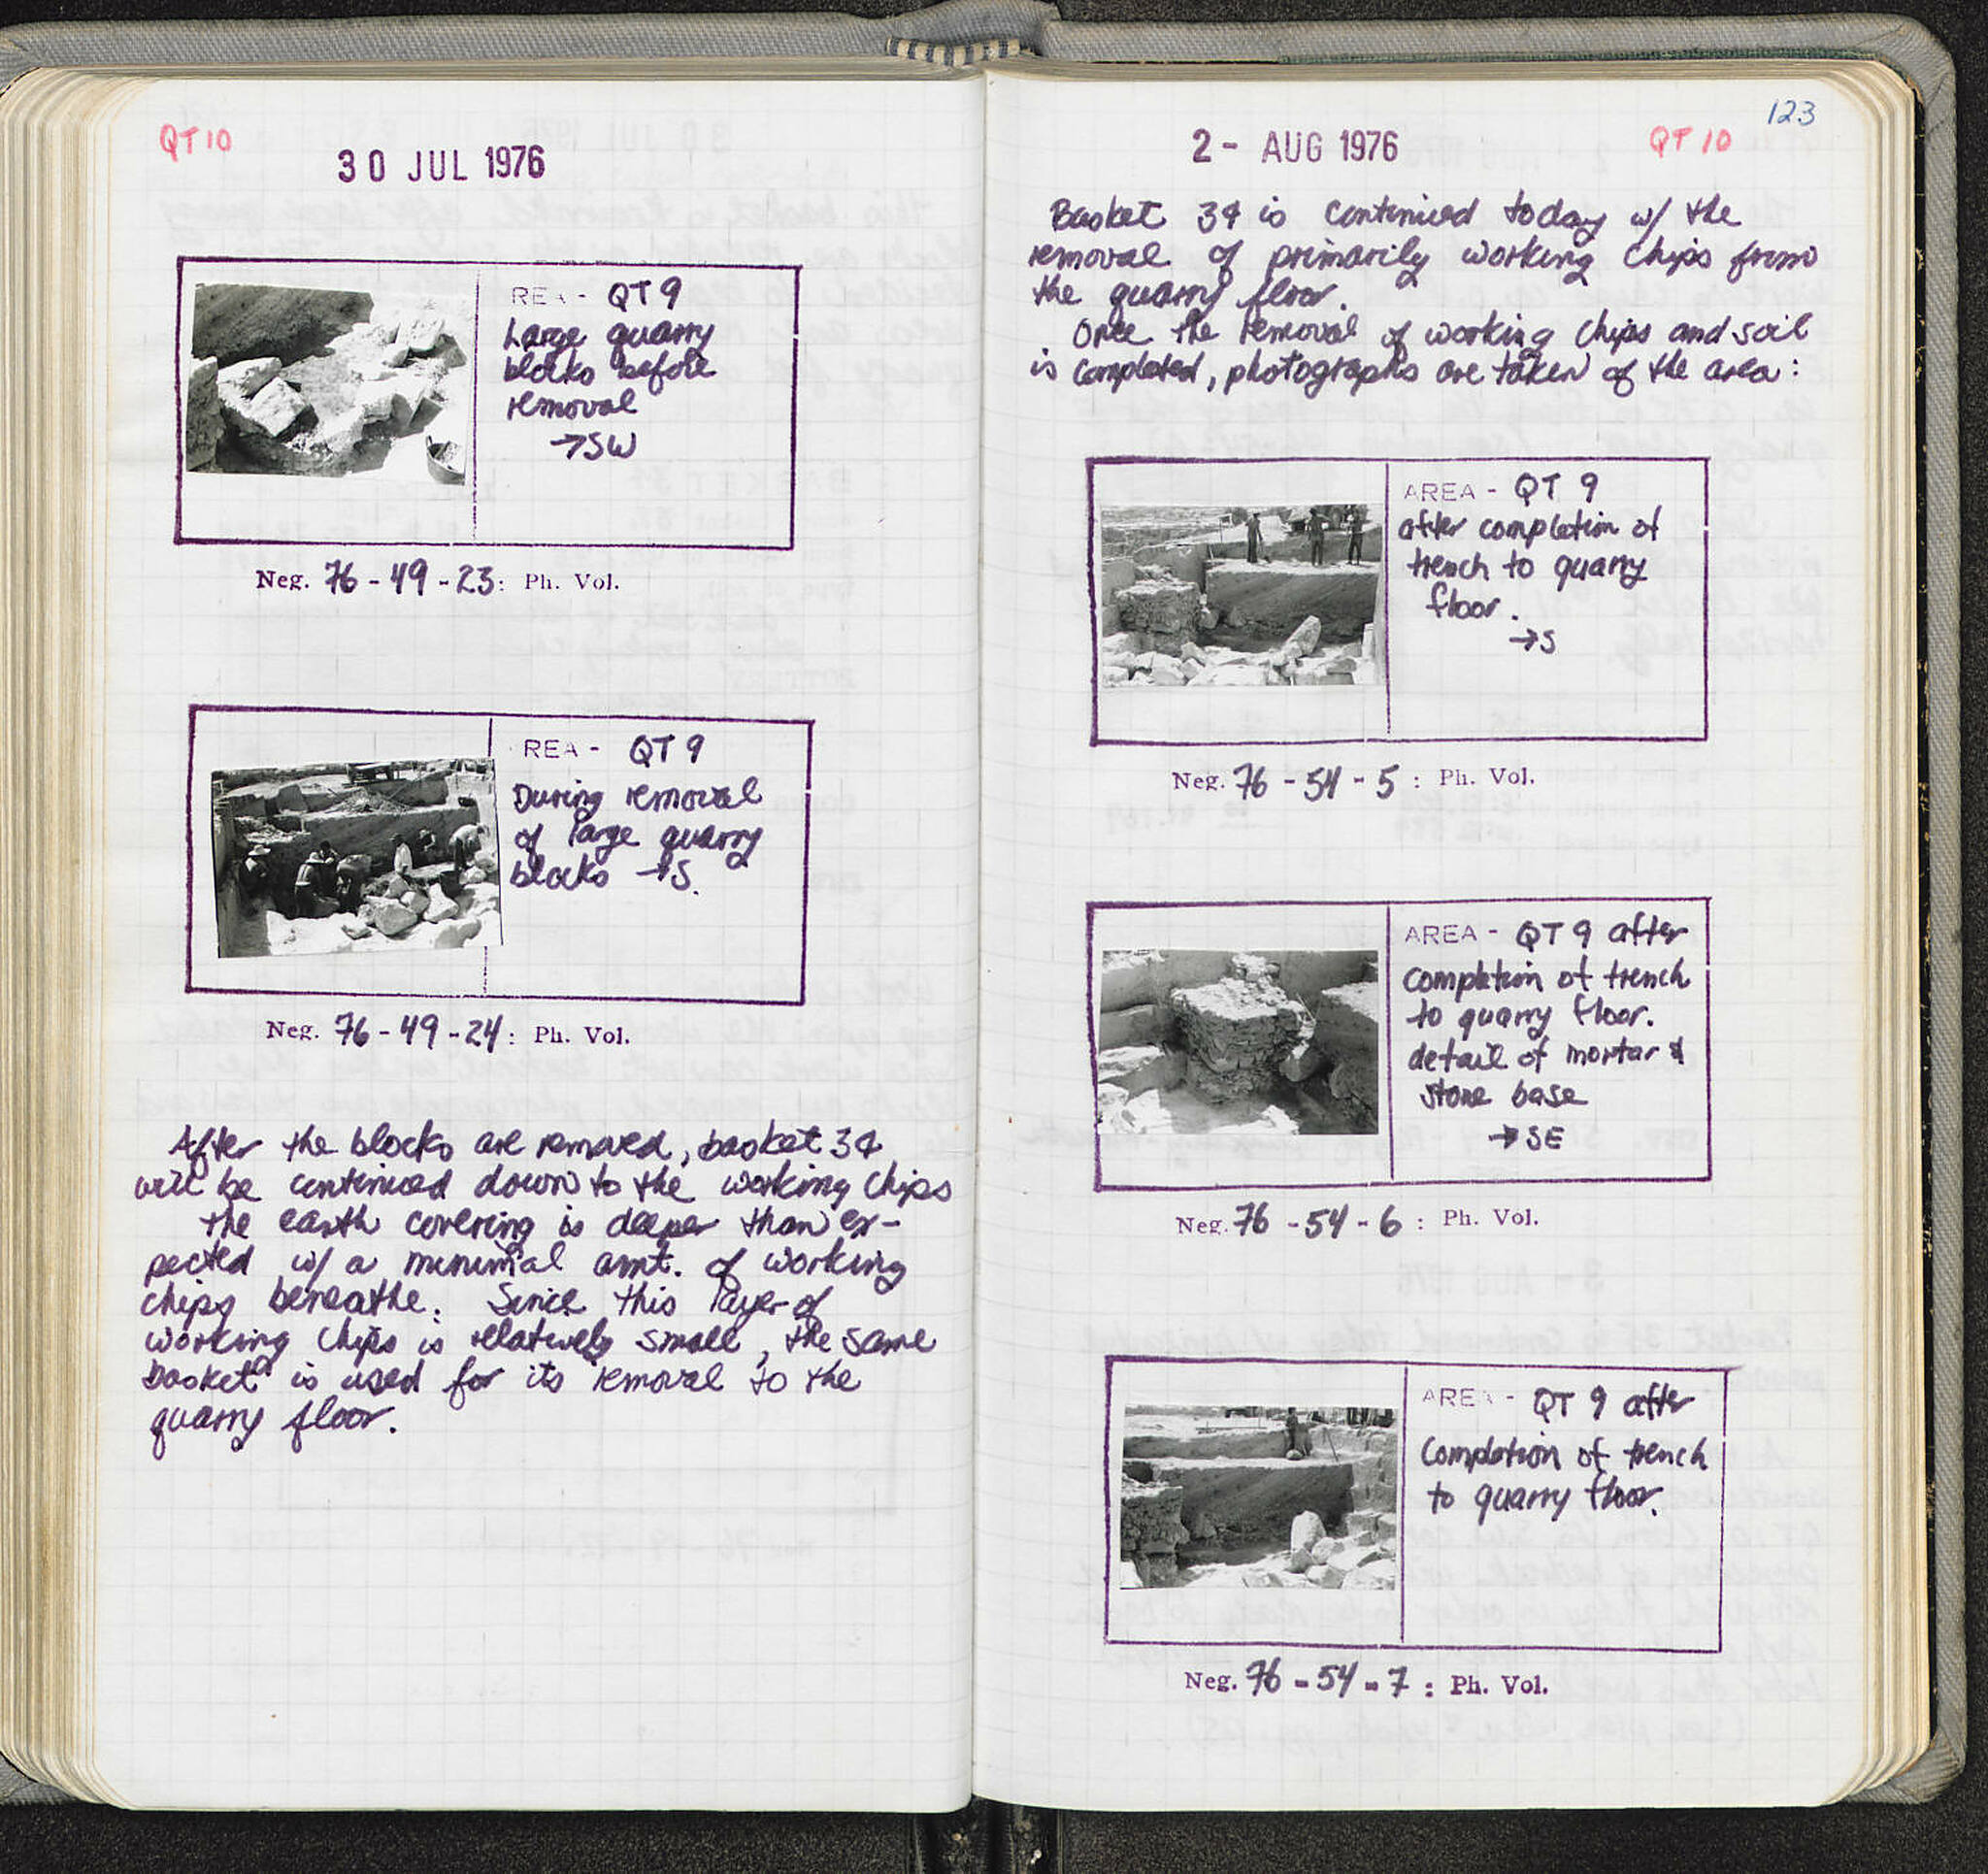 QT 10
30 JUL 1976
REA - QT 9
Large quarry
blocks before
removal
→SW
Neg. 76-49-23: Ph. Vol.
REA - QT 9
During removal
of large quarry
blocks →S.
Neg. 76-49-24: Ph. Vol.
After the blocks are removed, basket 34
will be continued down to the working chips
the earth covering is deeper than ex-
pected w/ a minimal amt. of working
chips beneathe. Since this layer of
working chips is relatively small, the same
basket is used for its removal to the
quarry floor.
123
2 - AUG 1976
QT 10
Basket 34 is continued today w/ the
removal of primarily working chips from
the quarry floor.
Once the removal of working chips and soil
is completed, photographs are taken of the area:
AREA - QT 9
after completion of
trench to quarry
floor.
→S
Neg. 76-54-5 : Ph. Vol.
AREA - QT 9 after
completion of trench
to quarry floor.
detail of mortar &
stone base
→SE
Neg. 76-54-6 : Ph. Vol.
AREA - QT 9 after
completion of trench
to quarry floor.
Neg. 76-54-7 : Ph. Vol.